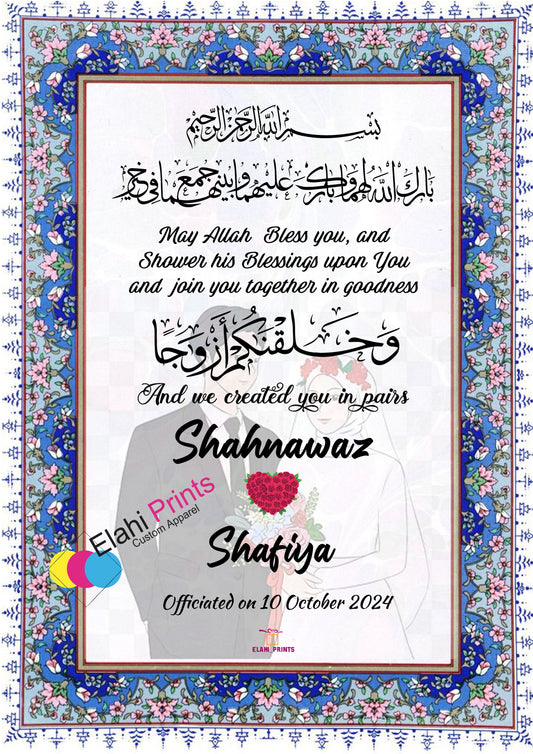 بسم الله الرحمن الرحيم
بارك الله لهما وبارك عليهما وجمع بينهما في خير
May Allah Bless you, and
Shower his Blessings upon You
and join you together in goodness
وَخَلَقْنَكُمْ أَزْوَجًا
And we created you in pairs
Shahnawaz
Elahi Prints
Custom Apparel
Shafiya
Officiated on 10 October 2024
ELAHI_PRINTS